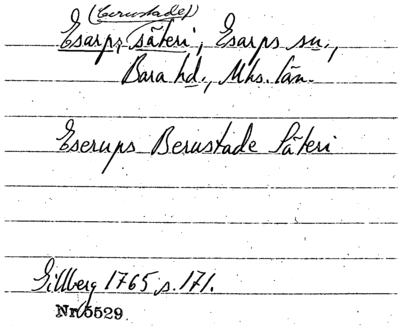 (berustade)
Esarps säteri, Esarps sn.,
Bara hd., Mhs. län.
Eserups Berustade Säteri
Gillberg 1765 s. 171.
Nr 5529